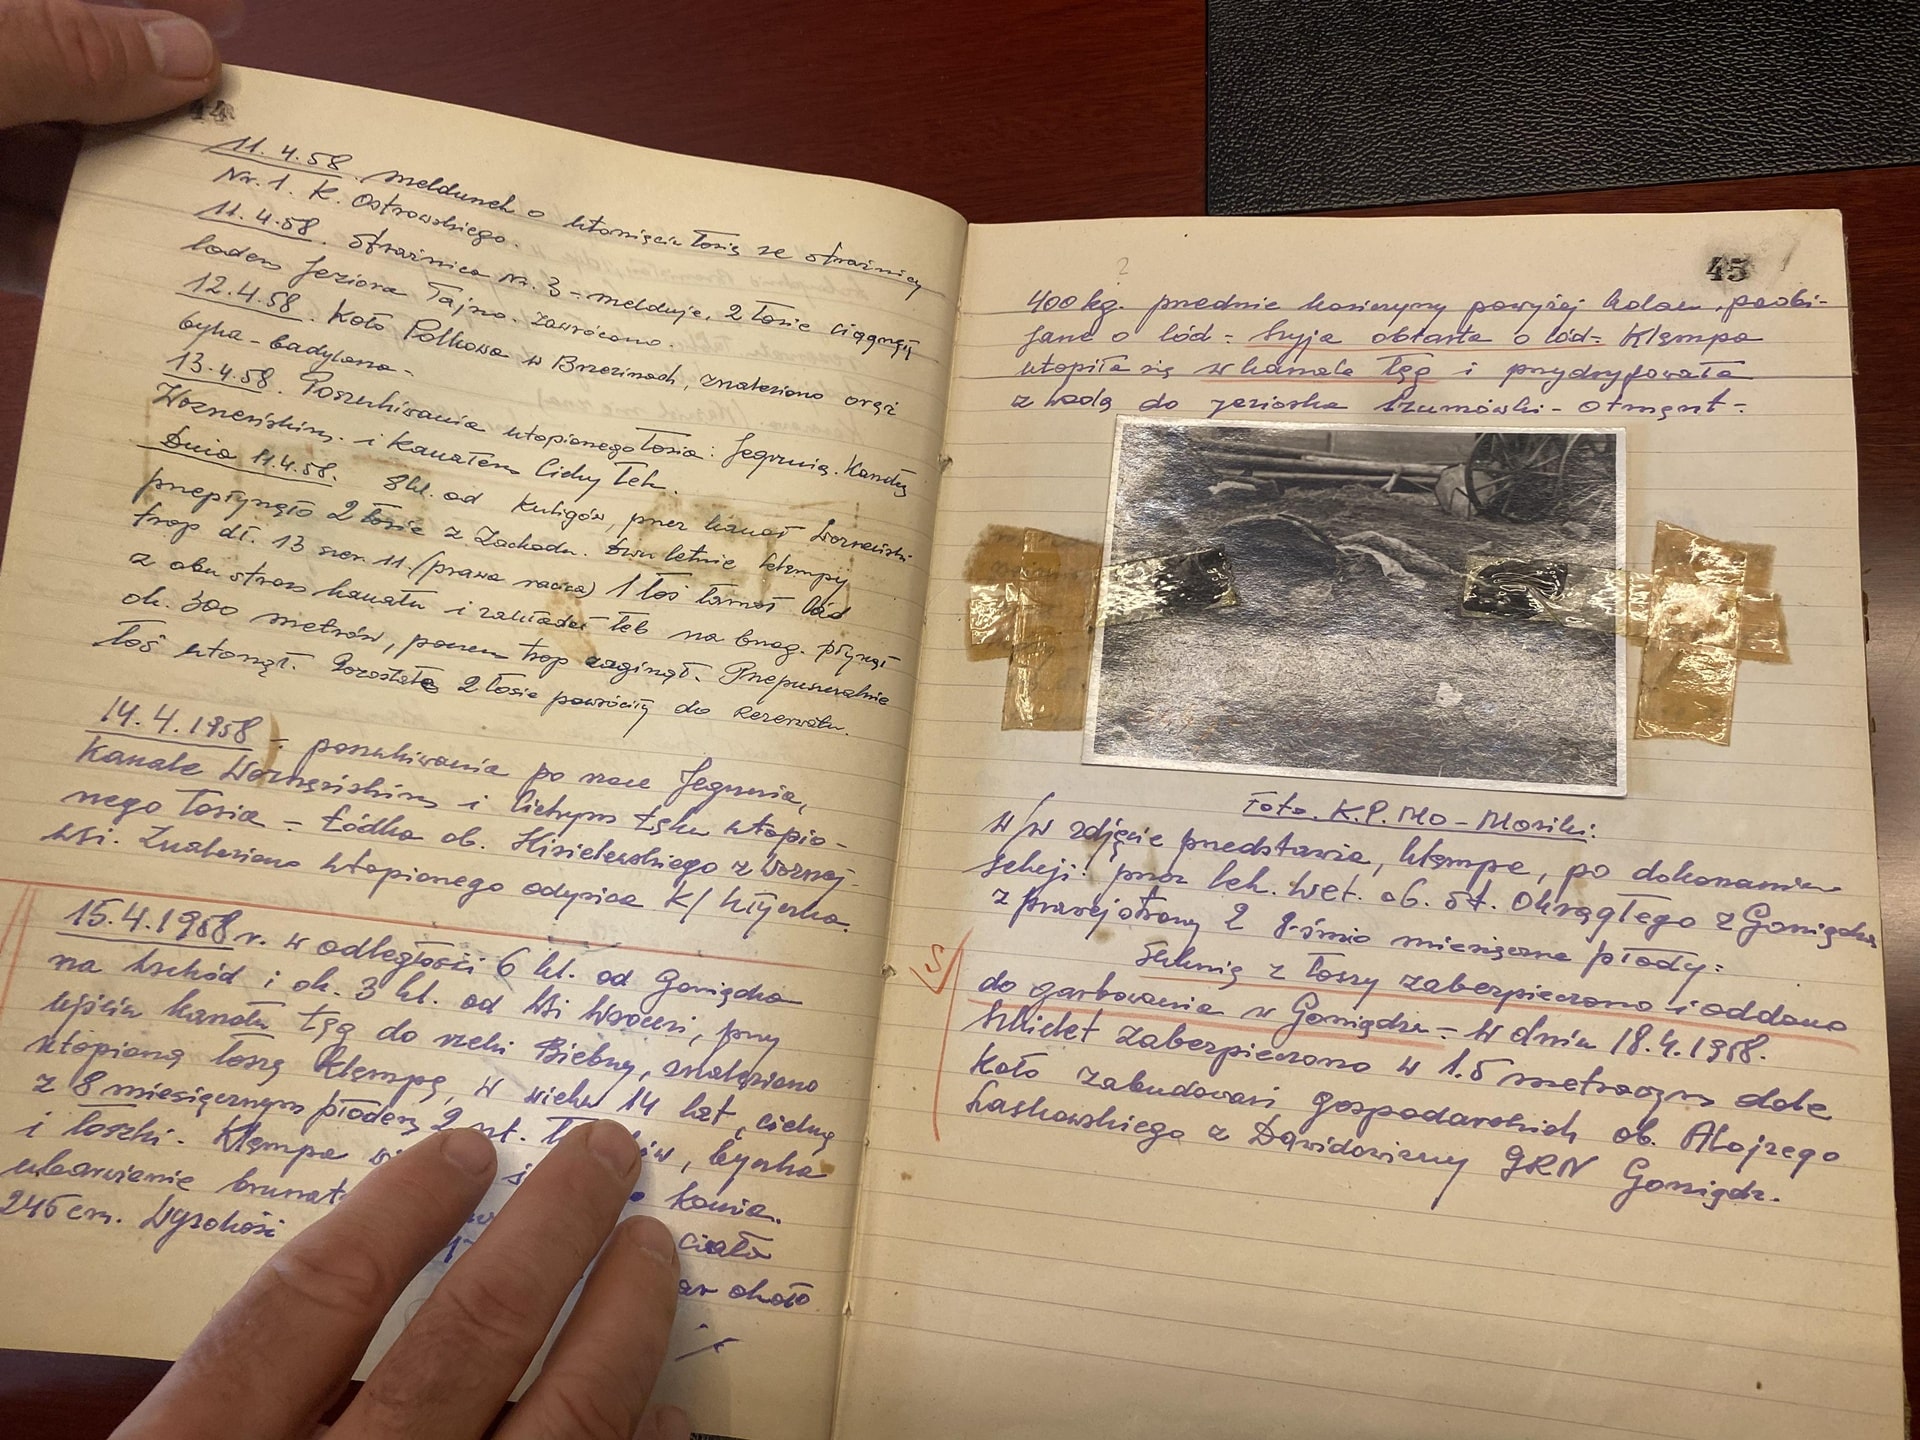 44
11.4.58. Meldunek o utonięciu łosia ze strażnicy
Nr. 1. K. Ostrowskiego.
11.4.58. Strażnica Nr. 3 – melduje, 2 łosie ciągnęły
lodem Jeziora Tajno. Zawrócono.
12.4.58. Koło Polkowa w Brzezinach, znaleziono oręż
byka - badylarza -
13.4.58. Poszukiwania utopionego łosia: Jegrznią. Kanałem
Woźneńskim. i Kanałem Cichy Łęk.
Dnia 11.4.58. 8 kl. od Kuligów, przez kanał Woźneński-
przepłynęło 2 łosie z Zachodu. Dwu letnie klempy
trop dł. 13 szer. 11. (prawa racica) 1 łoś łamał lód
z obu stron kanału i zakładał łeb na brzeg. płynął
ok. 300 metrów, poczem trop zaginął. Przepuszczalnie
łoś utonął. Pozostałe 2 łosie powróciły do Rezerwatu.
14.4.1958 – poszukiwania po rzece Jegrznia,
Kanale Woźneńskim i Cichym Łęku utopio-
nego łosia – łódka ob. Kisielewskiego z Woźnej-
wsi. Znaleziono utopionego odyńca K/
15.4.1958 r. w odległości 6 kl. od Goniądza
na wschód i ok. 3 kl. od wsi Wroceni, przy
ujściu kanału Łęg do rzeki Biebrzy, znaleziono
utopioną łoszę Klempę, w wieku 14 lat, cielną
z 8 miesięcznym płodem 2 szt. byczka
i łoszki. Klempa konia.
ubarwienie brunat ciała
246 cm. Wysokość około
45
400 kg. przednie kończyny powyżej kolan, poobi-
jane o lód = szyja obtarta o lód = Klempa
utopiła się w kanale Łęg i przydryfowała
z wodą do jeziorka Szumówki - Otmęnt -.
Foto. K.P. MO - Mońki:
w/w zdjęcie przedstawia, klempę, po dokonaniu
sekcji: przez lek. wet. ob. St. Okrągłego z Goniądza
z prawej strony 2 8-śmio miesięczne płody:
Suknię z łoszy zabezpieczono i oddano
do garbowania w Goniądzu – w dniu 18.4.1958.
Szkielet zabezpieczono w 1.5 metrowym dole
Koło zabudowań gospodarskich ob. Alojzego
Laskowskiego z Dawidowizny GRN Goniądz.